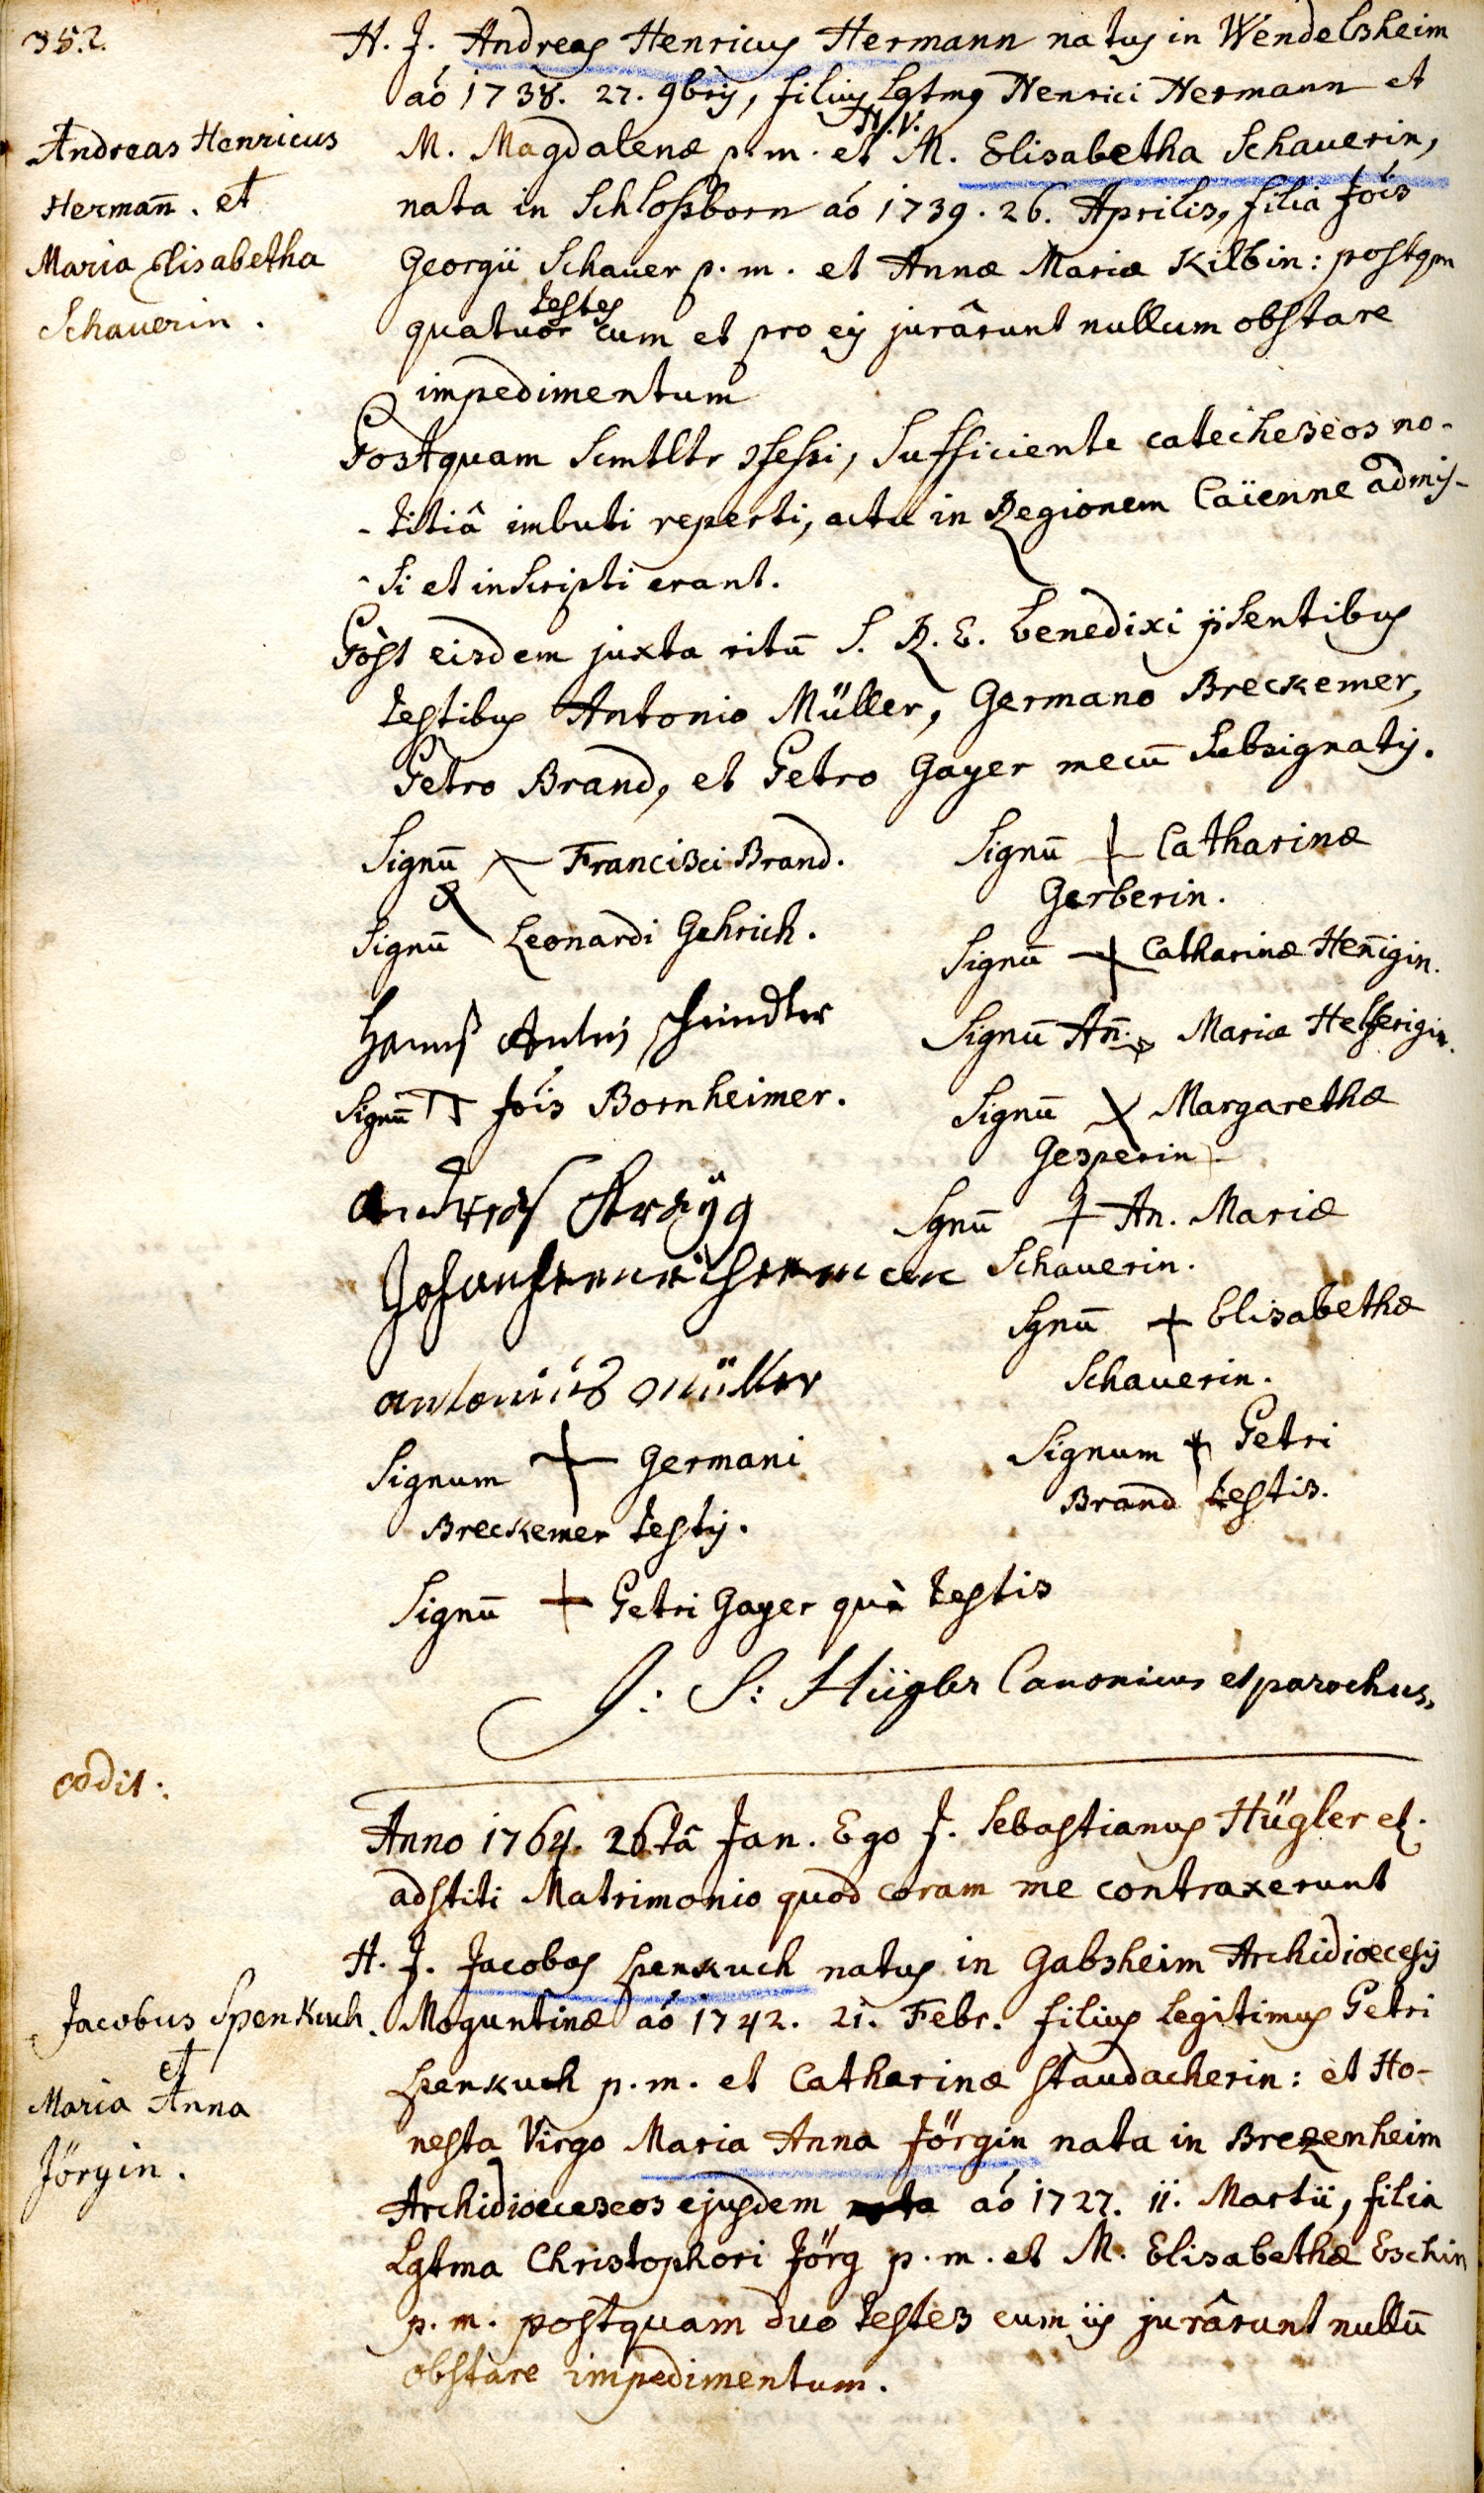 352.
H. J. Andreas Henricus Hermann natus in Wendelsheim
aó 1738. 27. 9bris, filius Lgtmq Henrici Hermann et
Andreas Henricus
Hermañ. et
Maria Elisabetha
Schauerin.
H. V.
M. Magdalenæ p. m. et M. Elisabetha Schauerin,
nata in Schlossborn aó 1739. 26. Aprilis, filia Jois
Georgii Schauer p. m. et Annæ Mariæ Kilbin: postqm
testes
quatuor cum et pro eis jurârunt nullum obstare
impedimentum
Postquam Scmtltr ɔfessi, Sufficiente catecheseos no-
-titiâ imbuti reperti, actu in Regionem Caïenne admis-
-si et inscripti erant.
Post eisdem juxta ritū S. R. E. benedixi p̄sentibus
testibus Antonio Müller, Germano Breckemer,
Petro Brand, et Petro Gayer mecū Subsignatis.
Signū Francisci Brand.
Signū Leonardi Gehrich.
Hanns
Signū Jóis Bornheimer.
andreas
antonius Müller
Signum + Germani
Breckemer testis.
Signū + Petri Gayer quà testis
Signū + Catharinæ
Gerberin.
Signū + Catharinæ Hen̄igin.
Signū An̄. Mariæ Helferigin.
Signū X Margarethæ
Gesperin
Sgnū + An. Mariæ
Schauerin.
Sgnū + Elisabethæ
Schauerin.
Signum + Petri
Brand testis.
J: S: Hügler Canonicus et parochus.
eodit:
Anno 1764. 26.tâ Jan. Ego J. Sebastianus Hügler etc.
adstiti Matrimonio quod coram me contraxerunt
Jacobus Spenkuch.
et
Maria Anna
Jörgin.
H. J. Jacobus Spenkuch natus in Gabsheim Archidiœcesis
Moguntinæ aó 1742. 21. Febr. filius legitimus Petri
Spenkuch p. m. et Catharinæ Staudacherin: et Ho-
nesta Virgo Maria Anna Jörgin nata in Brezenheim
Archidiœceseos ejusdem aó 1727. 11. Martii, filia
Lgtma Christophori Jörg p. m. et M. Elisabethæ Eschin
p. m. postquam duo testes cum iis jurârunt nullū
obstare impedimentum.